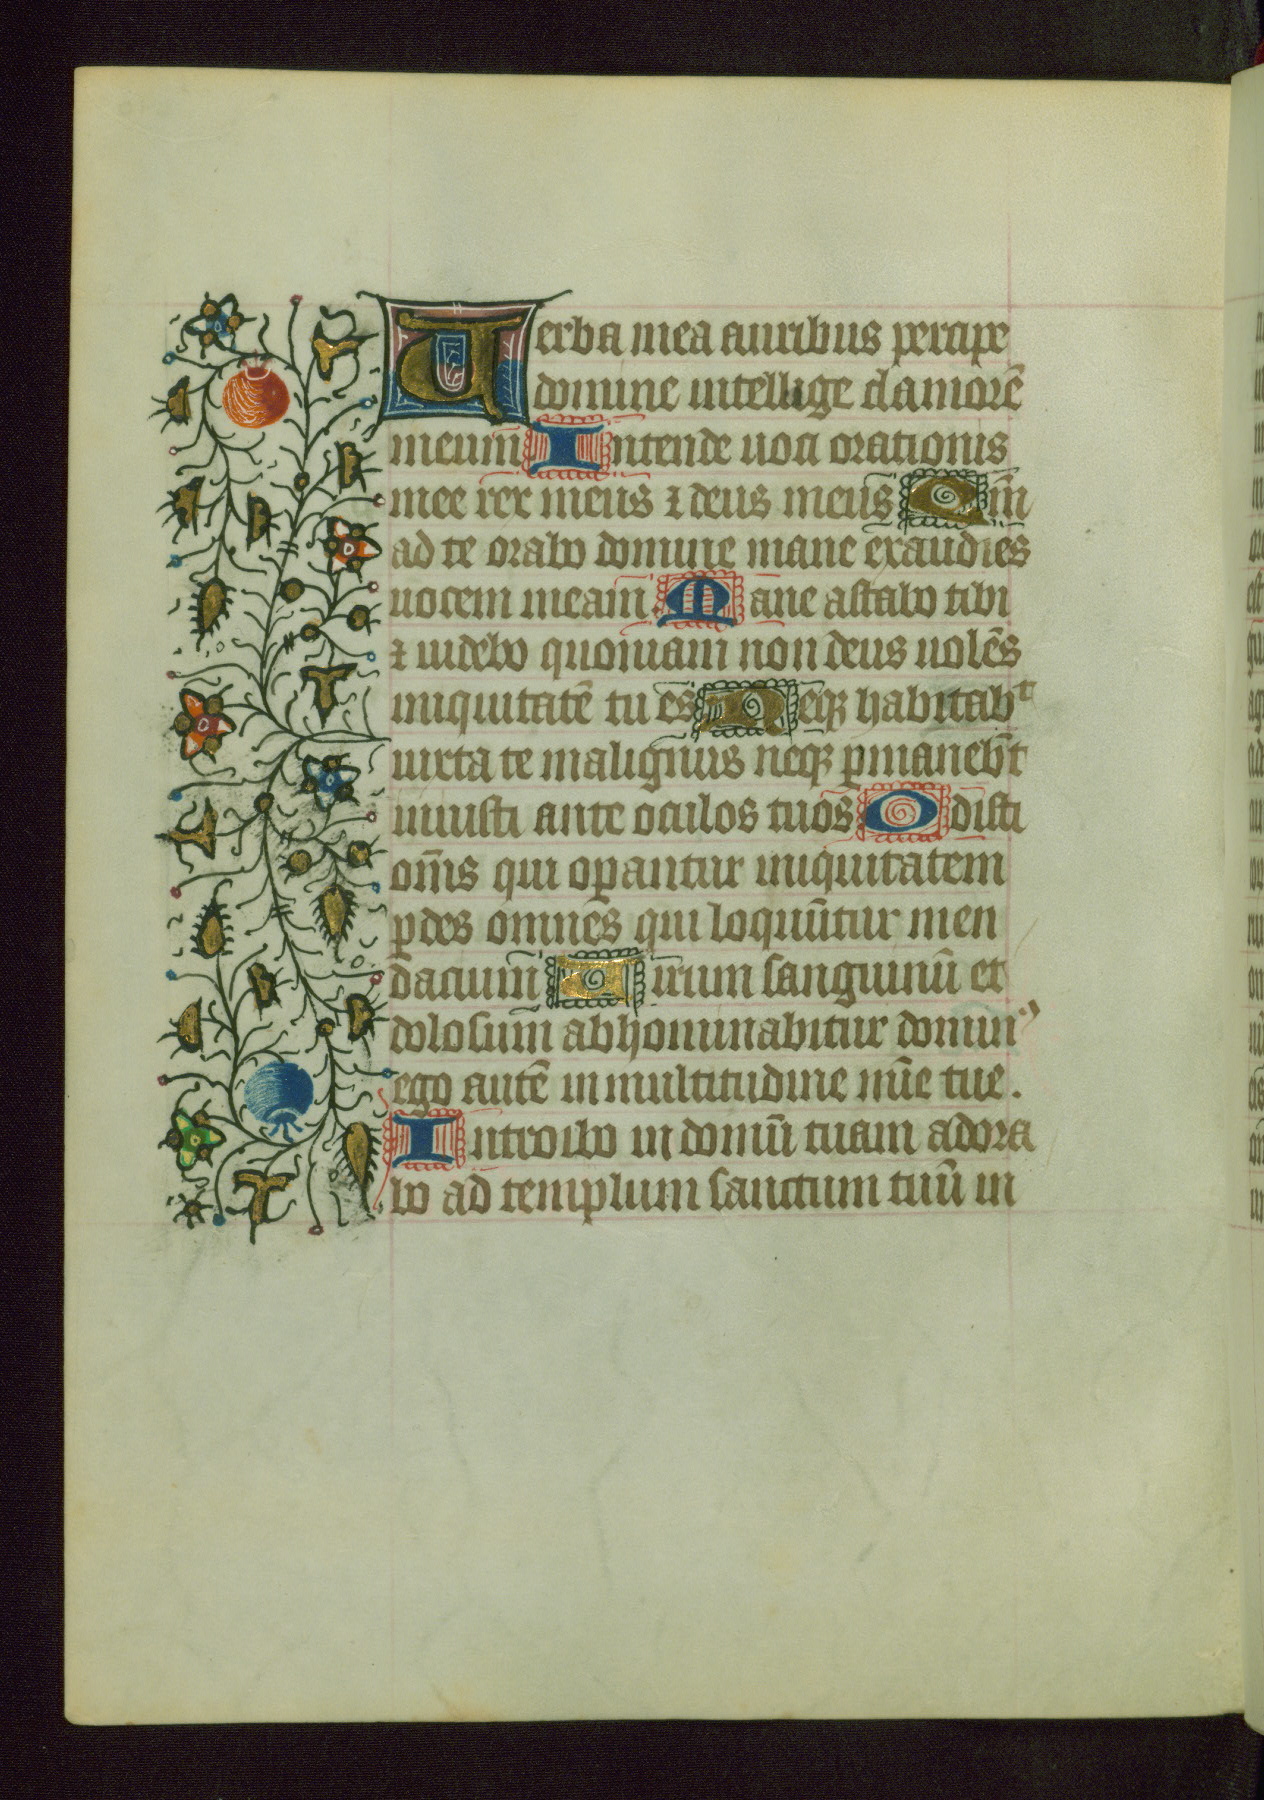 Verba mea auribus percipe
domine intellige clamorē
meum Intende uoci orationis
mee rex meus ⁊ deus meus Qm̄
ad te orabo domine mane exaudies
uocem meam Mane astabo tibi
⁊ uidebo quoniam non deus uolēs
iniquitatē tu es Neqꝫ habitabᵗ
iuxta te malignus neqꝫ ꝑmaneb̄t
iniusti ante oculos tuos Odisti
om̄s qui oꝑantur iniquitatem
ꝑdes omnes qui loquūtur men
dacium Uirum sanguinū et
dolosum abhominabitur domin⁹
ego autē in multitudine mīe tue.
Introibo in domū tuam adora
bo ad templum sanctum tuū in